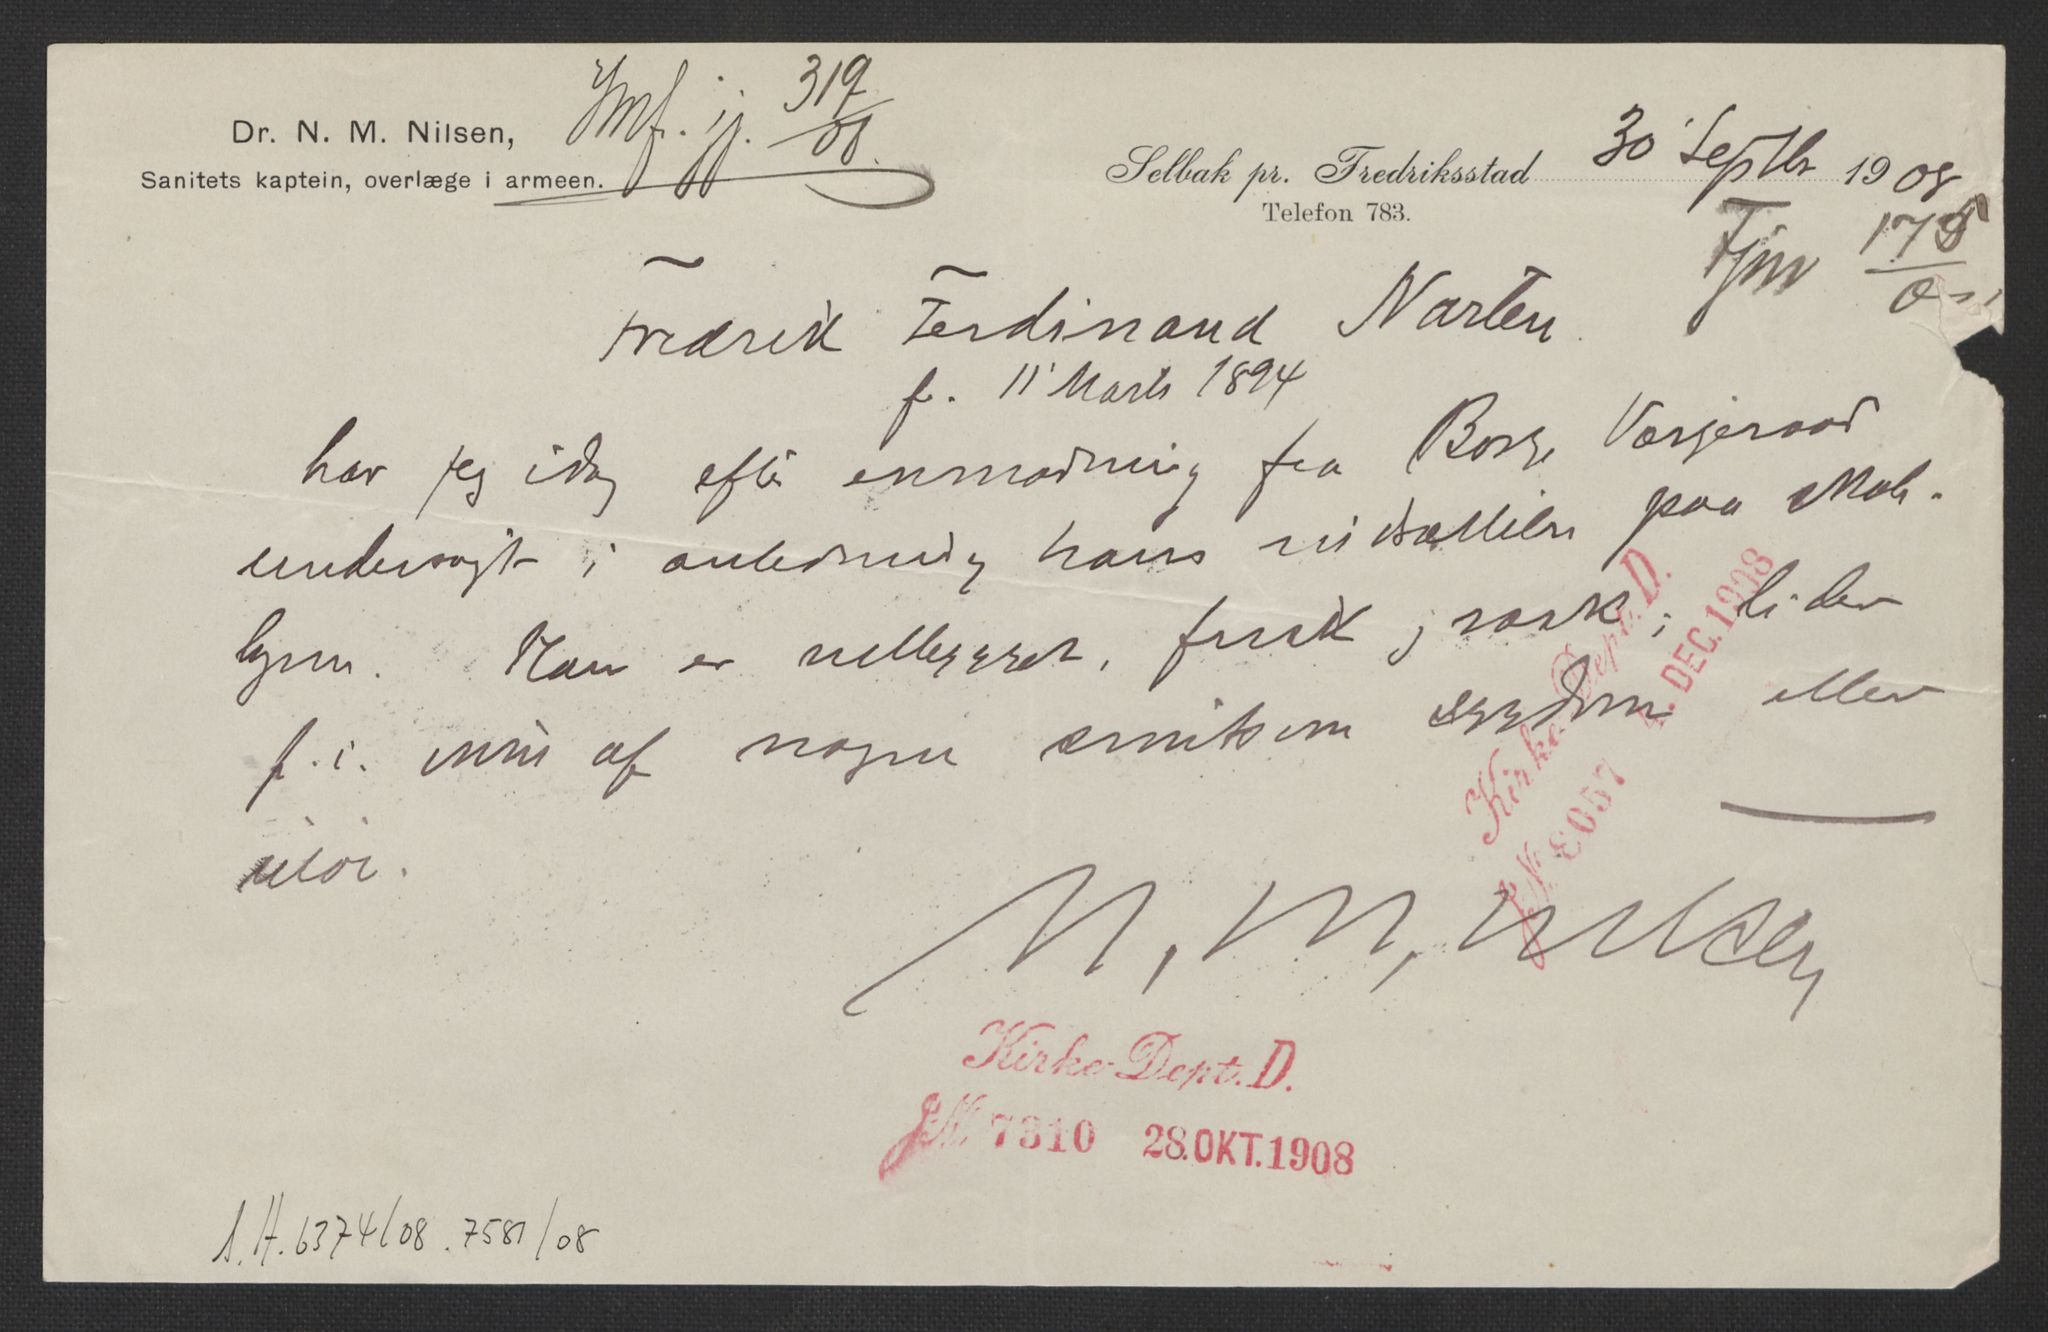 Dr. N. M. Nilsen,
Sanitets kaptein, overlæge i armeen.
Jmf. jj. 319/08.
Selbak pr. Fredriksstad 30' Septbr 1908
Telefon 783.
Fredrik Ferdinand Narten
f. 11' Marts 1894
har jeg idag efter anmodning fra Borge Værgeraad
undersøgt i anledning hans indsættelse paa skole-
hjem. Han er velbygget, frisk og rask; lider
f. i. ikke af nogen smitsom sygdom eller
utøi.
N. M. Nilsen
Kirke-Dept. D.
JN 3057 4. DEC. 1908
Kirke-Dept. D.
JN 7310 28. OKT. 1908
A.H. 6374/08. 7581/08